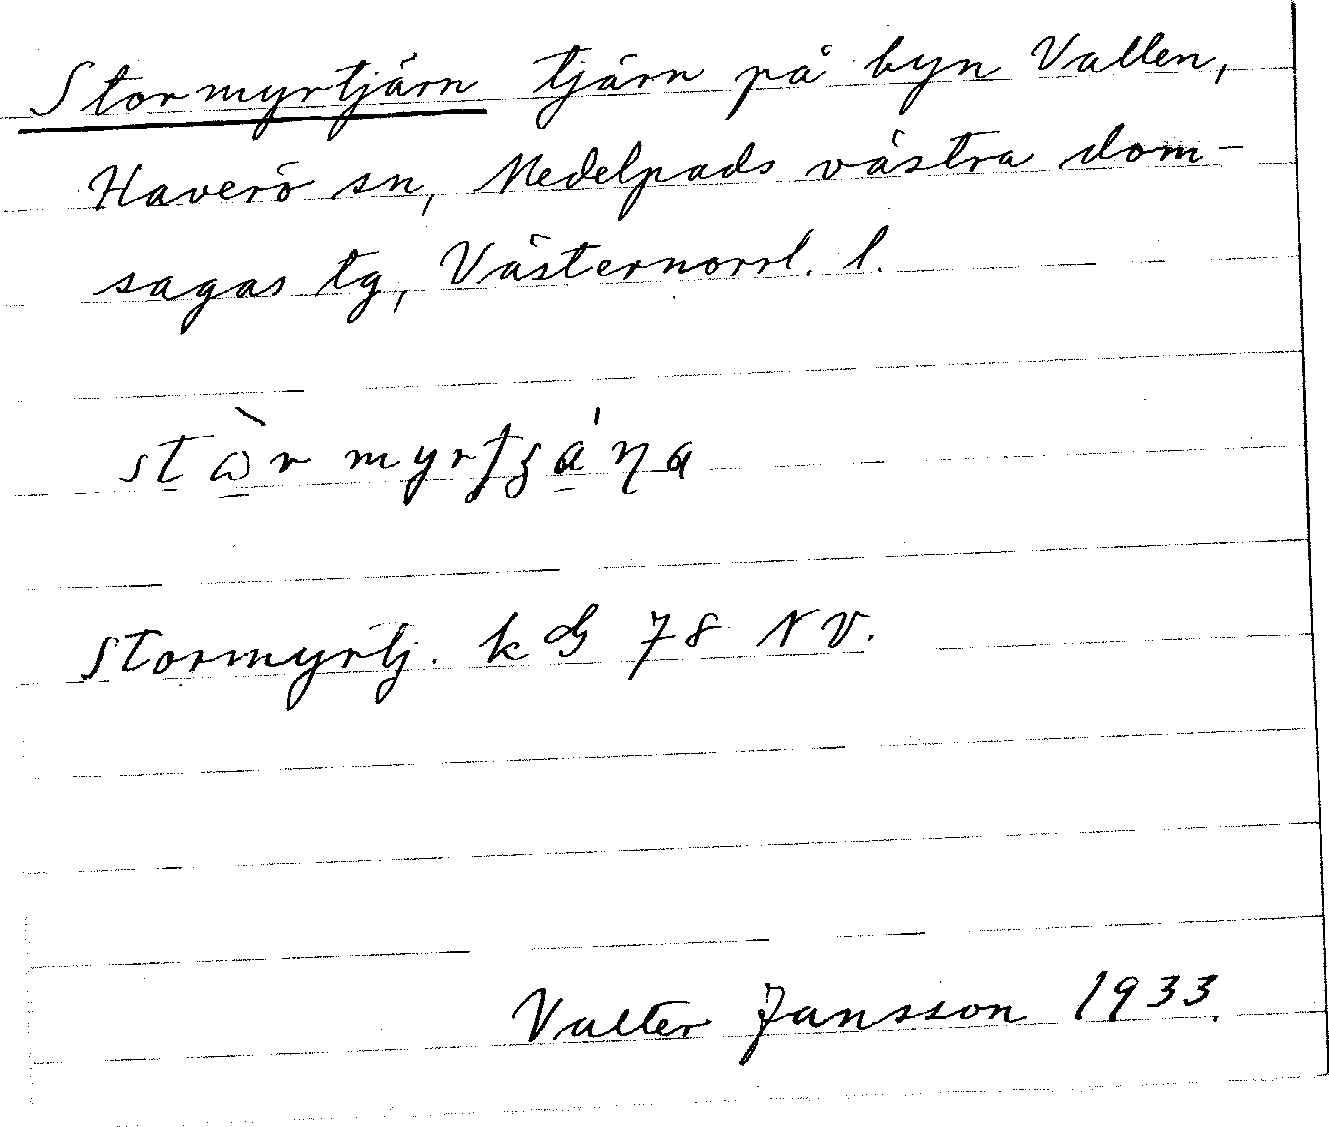 Stormyrtjärn tjärn på byn Vallen,
Haverö sn, Medelpads västra dom-
sagas tg, Västernorrl. l.
Stormyrtj. k G 78 NV.
Valter Jansson 1933.